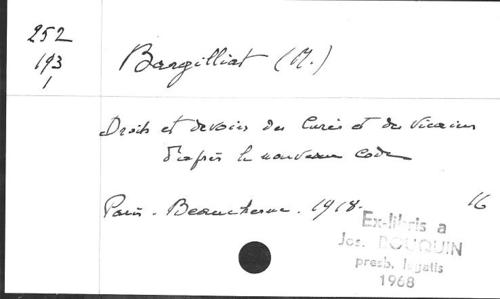 252
193
1
Bargilliat (M.)
Droits et devoirs des Curés et des Vicaires
d'après le nouveau code
Paris. Beauchesne. 1918. 16
Ex-libris a
Jos. BOUQUIN
presb. legatis
1968